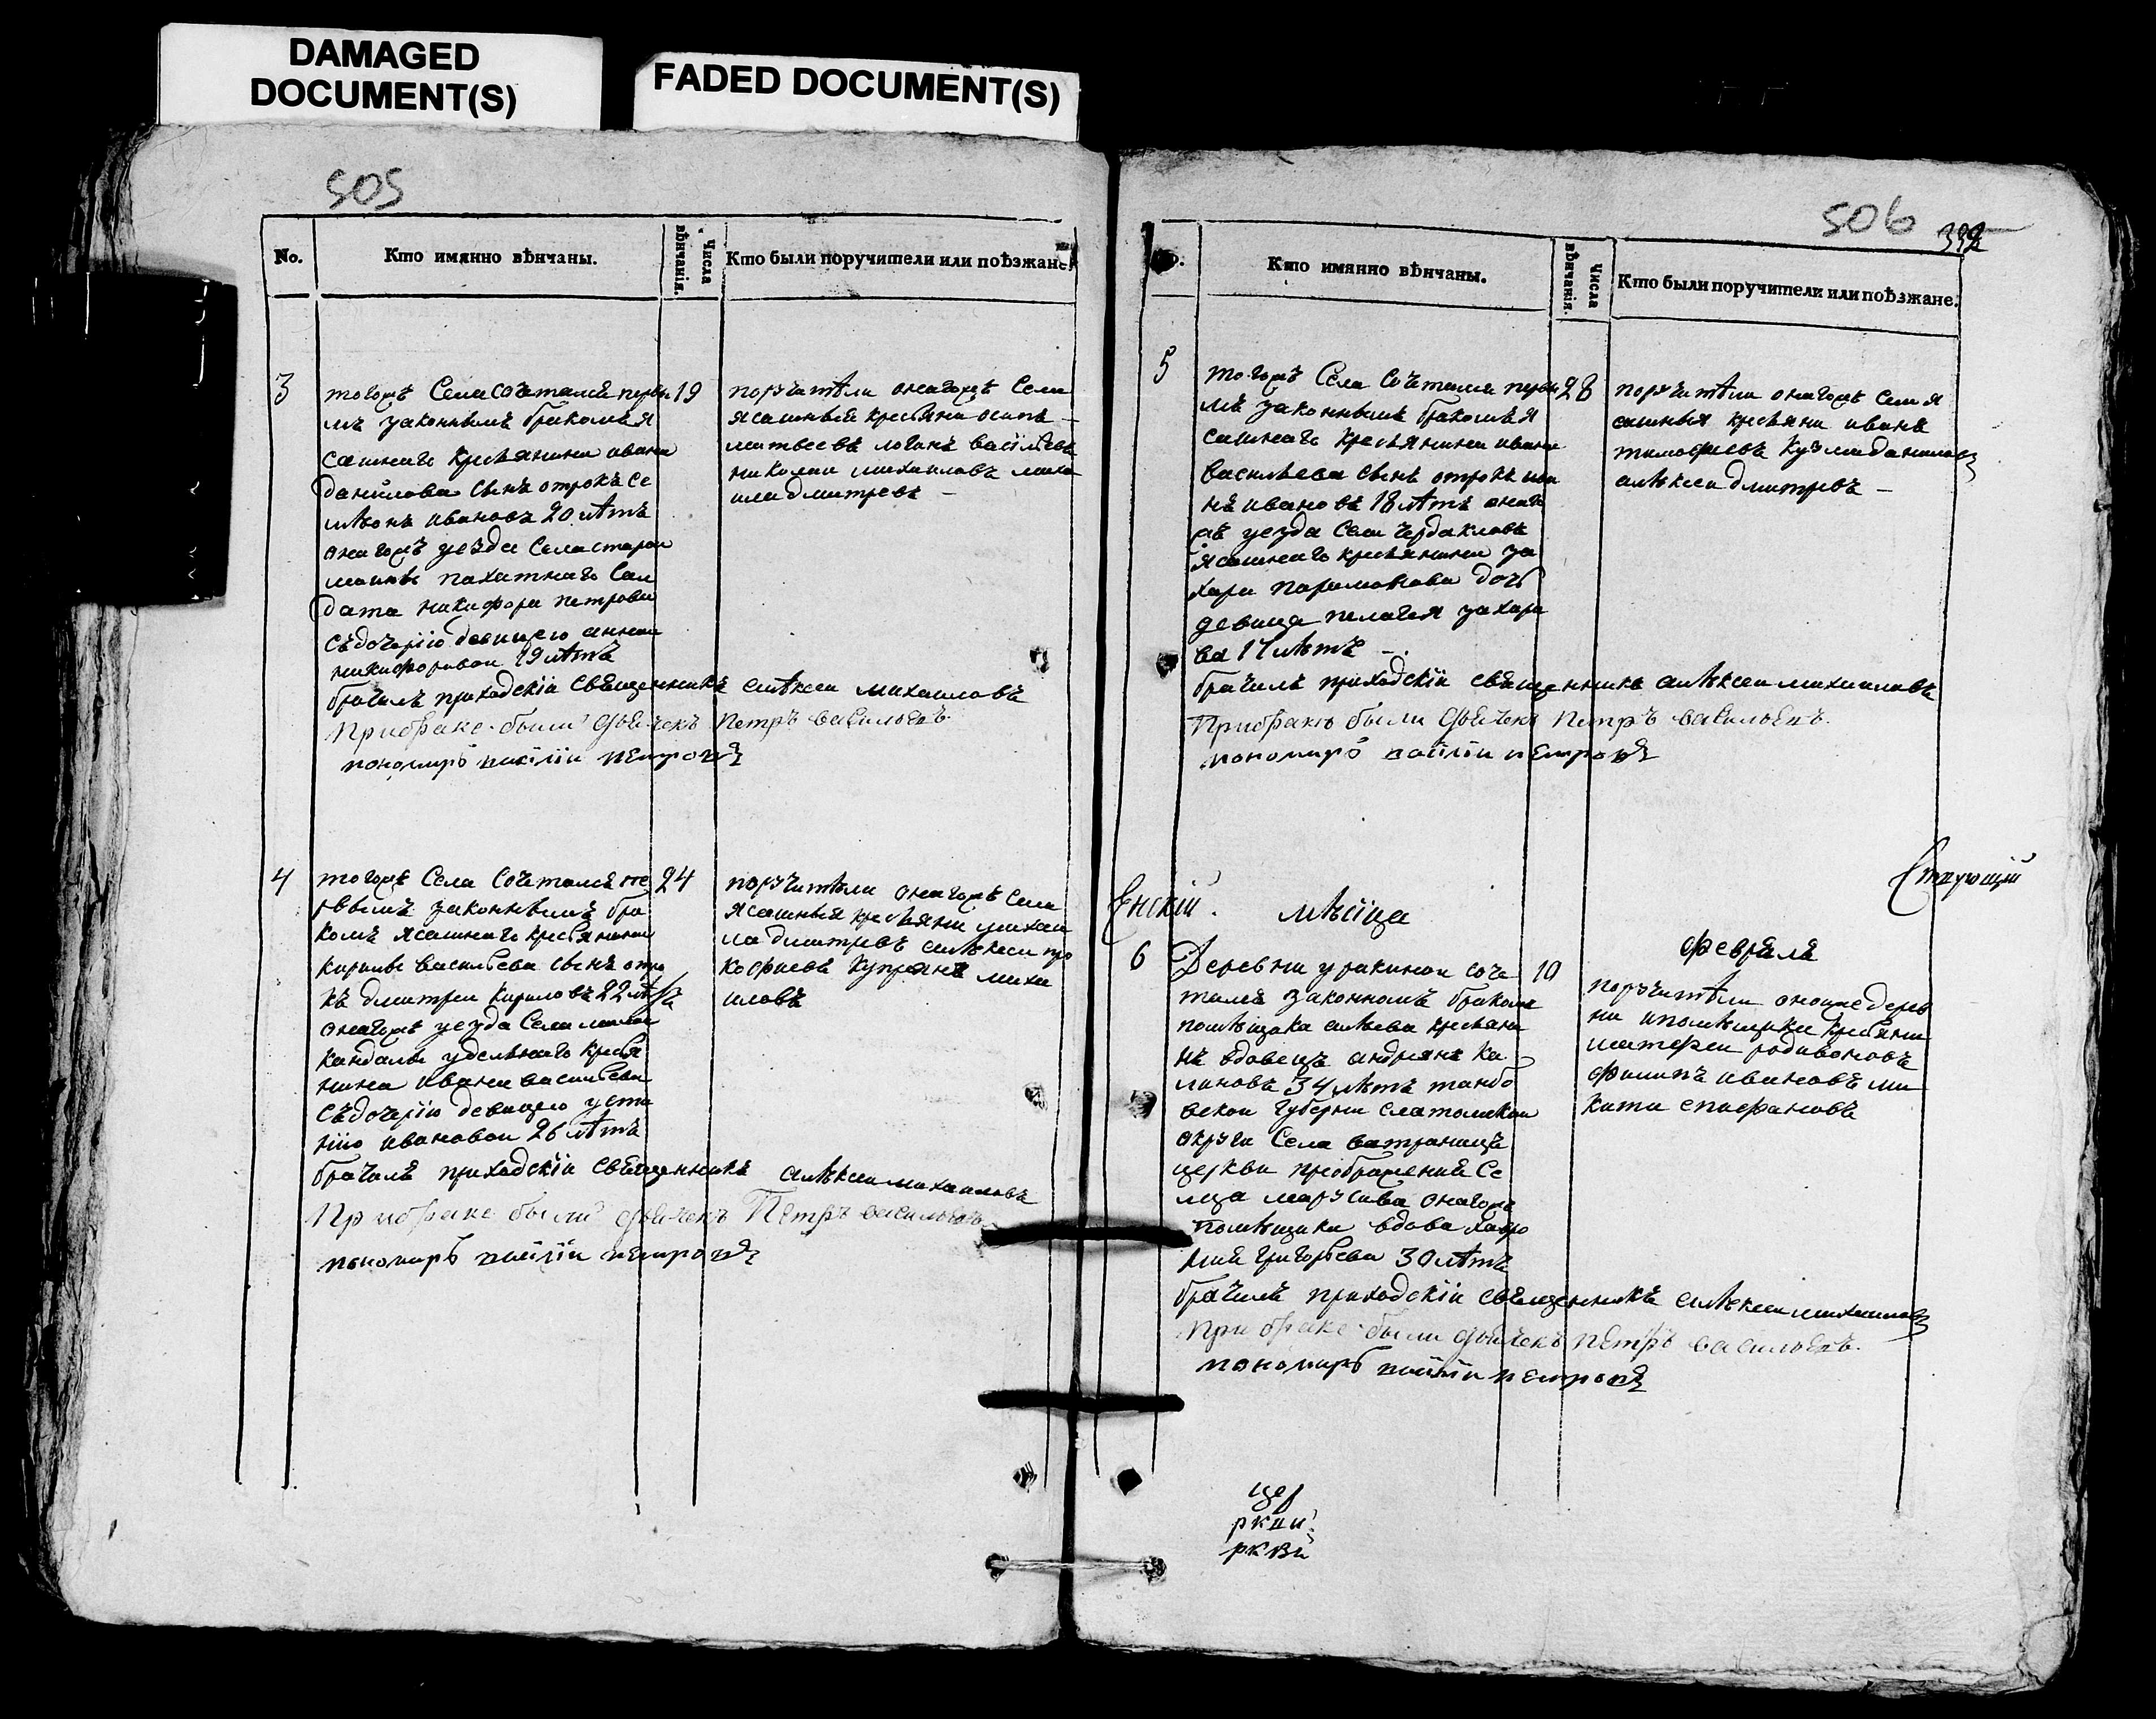 DAMAGED
DOCUMENT(S)
FADED DOCUMENT(S)
505
No.
Кто имянно вѣнчаны.
Числа
вѣнчанія.
Кто были поручители или поѣзжане.
3
тогожъ Села Сочетался первы
мъ законнымъ бракомъ я
сашнаго крестьянина ивана
данилова сынъ отрокъ се
мѣонъ ивановъ 20 лѣтъ
онагожъ уезда Села старои
маины пахатнаго Сал
дата никифора петрова
съ дочерію девицею анною
никифоровои 19 лѣтъ
19
поручитѣли онагожъ Села
ясашныя крестьяни осипъ
матвеевъ логинъ васільевъ
николаи михаиловъ миха
ила дмитревъ
брачилъ приходскіи священникъ алѣксеи михаиловъ
При браке были дьячекъ Петръ васильевъ
пономарь васіліи петровъ
4
тогожъ Села Сочетался пе
рвымъ законнымъ бра
комъ ясашнаго крестьянина
кирилы васильева сынъ отро
къ дмитреи кириловъ 22 лѣ
тъ
онагожъ уезда Села малои
кандалы удельнаго крестья
нина ивана васильева
съ дочерію девицею усти
ніию ивановои 26 лѣтъ
24
поручитѣли онагожъ Села
ясашныя крестьяни михаи
ла дмитревъ алѣксеи про
кофиевъ купреянъ миха
иловъ
брачилъ приходскіи священникъ алѣксеи михаиловъ
При браке были дьячекъ Петръ васильевъ
пономарь васіліи петровъ
506
392
Кто имянно вѣнчаны.
Числа
вѣнчанія.
Кто были поручители или поѣзжане.
5
тогожъ Села Сочетался первы
мъ законнымъ бракомъ я
сашнаго крестьянина ивана
васильева сынъ отрокъ ива
нъ ивановъ 18 лѣтъ онаго
жъ уезда Села чердакловъ
ясашнаго крестьянина за
хара парамонова дочь
девица пелагея захаро
ва 17 лѣтъ
28
поручитѣли онагожъ Села я
сашныя крестьяни иванъ
тимофиевъ кузма даниловъ
алѣксеи дмитревъ
брачилъ приходскіи священникъ алѣксеи михаиловъ
При браке были дьячекъ Петръ васильевъ
пономарь васіліи петровъ
мѣсяца
февраля
6
Деревни уракинои соче
тался законномъ бракомъ
помѣщика крестьяни
нъ вдовецъ андреянъ ка
линовъ 34 лѣтъ танбо
вскои губерни елатомскои
округи Села
церкви преображения Се
лца онагожъ
помѣщика вдова хавро
ния григорьева 30 лѣтъ
10
поручитѣли оноижедерев
ни ипомѣщика крестьяни
матфеи родивоновъ
филипъ ивановъ ни
кита епифановъ
брачилъ приходскіи священникъ алѣксеи михаиловъ
При браке были дьячекъ Петръ васильевъ
пономарь васіліи петровъ
цер
ркви
ркви